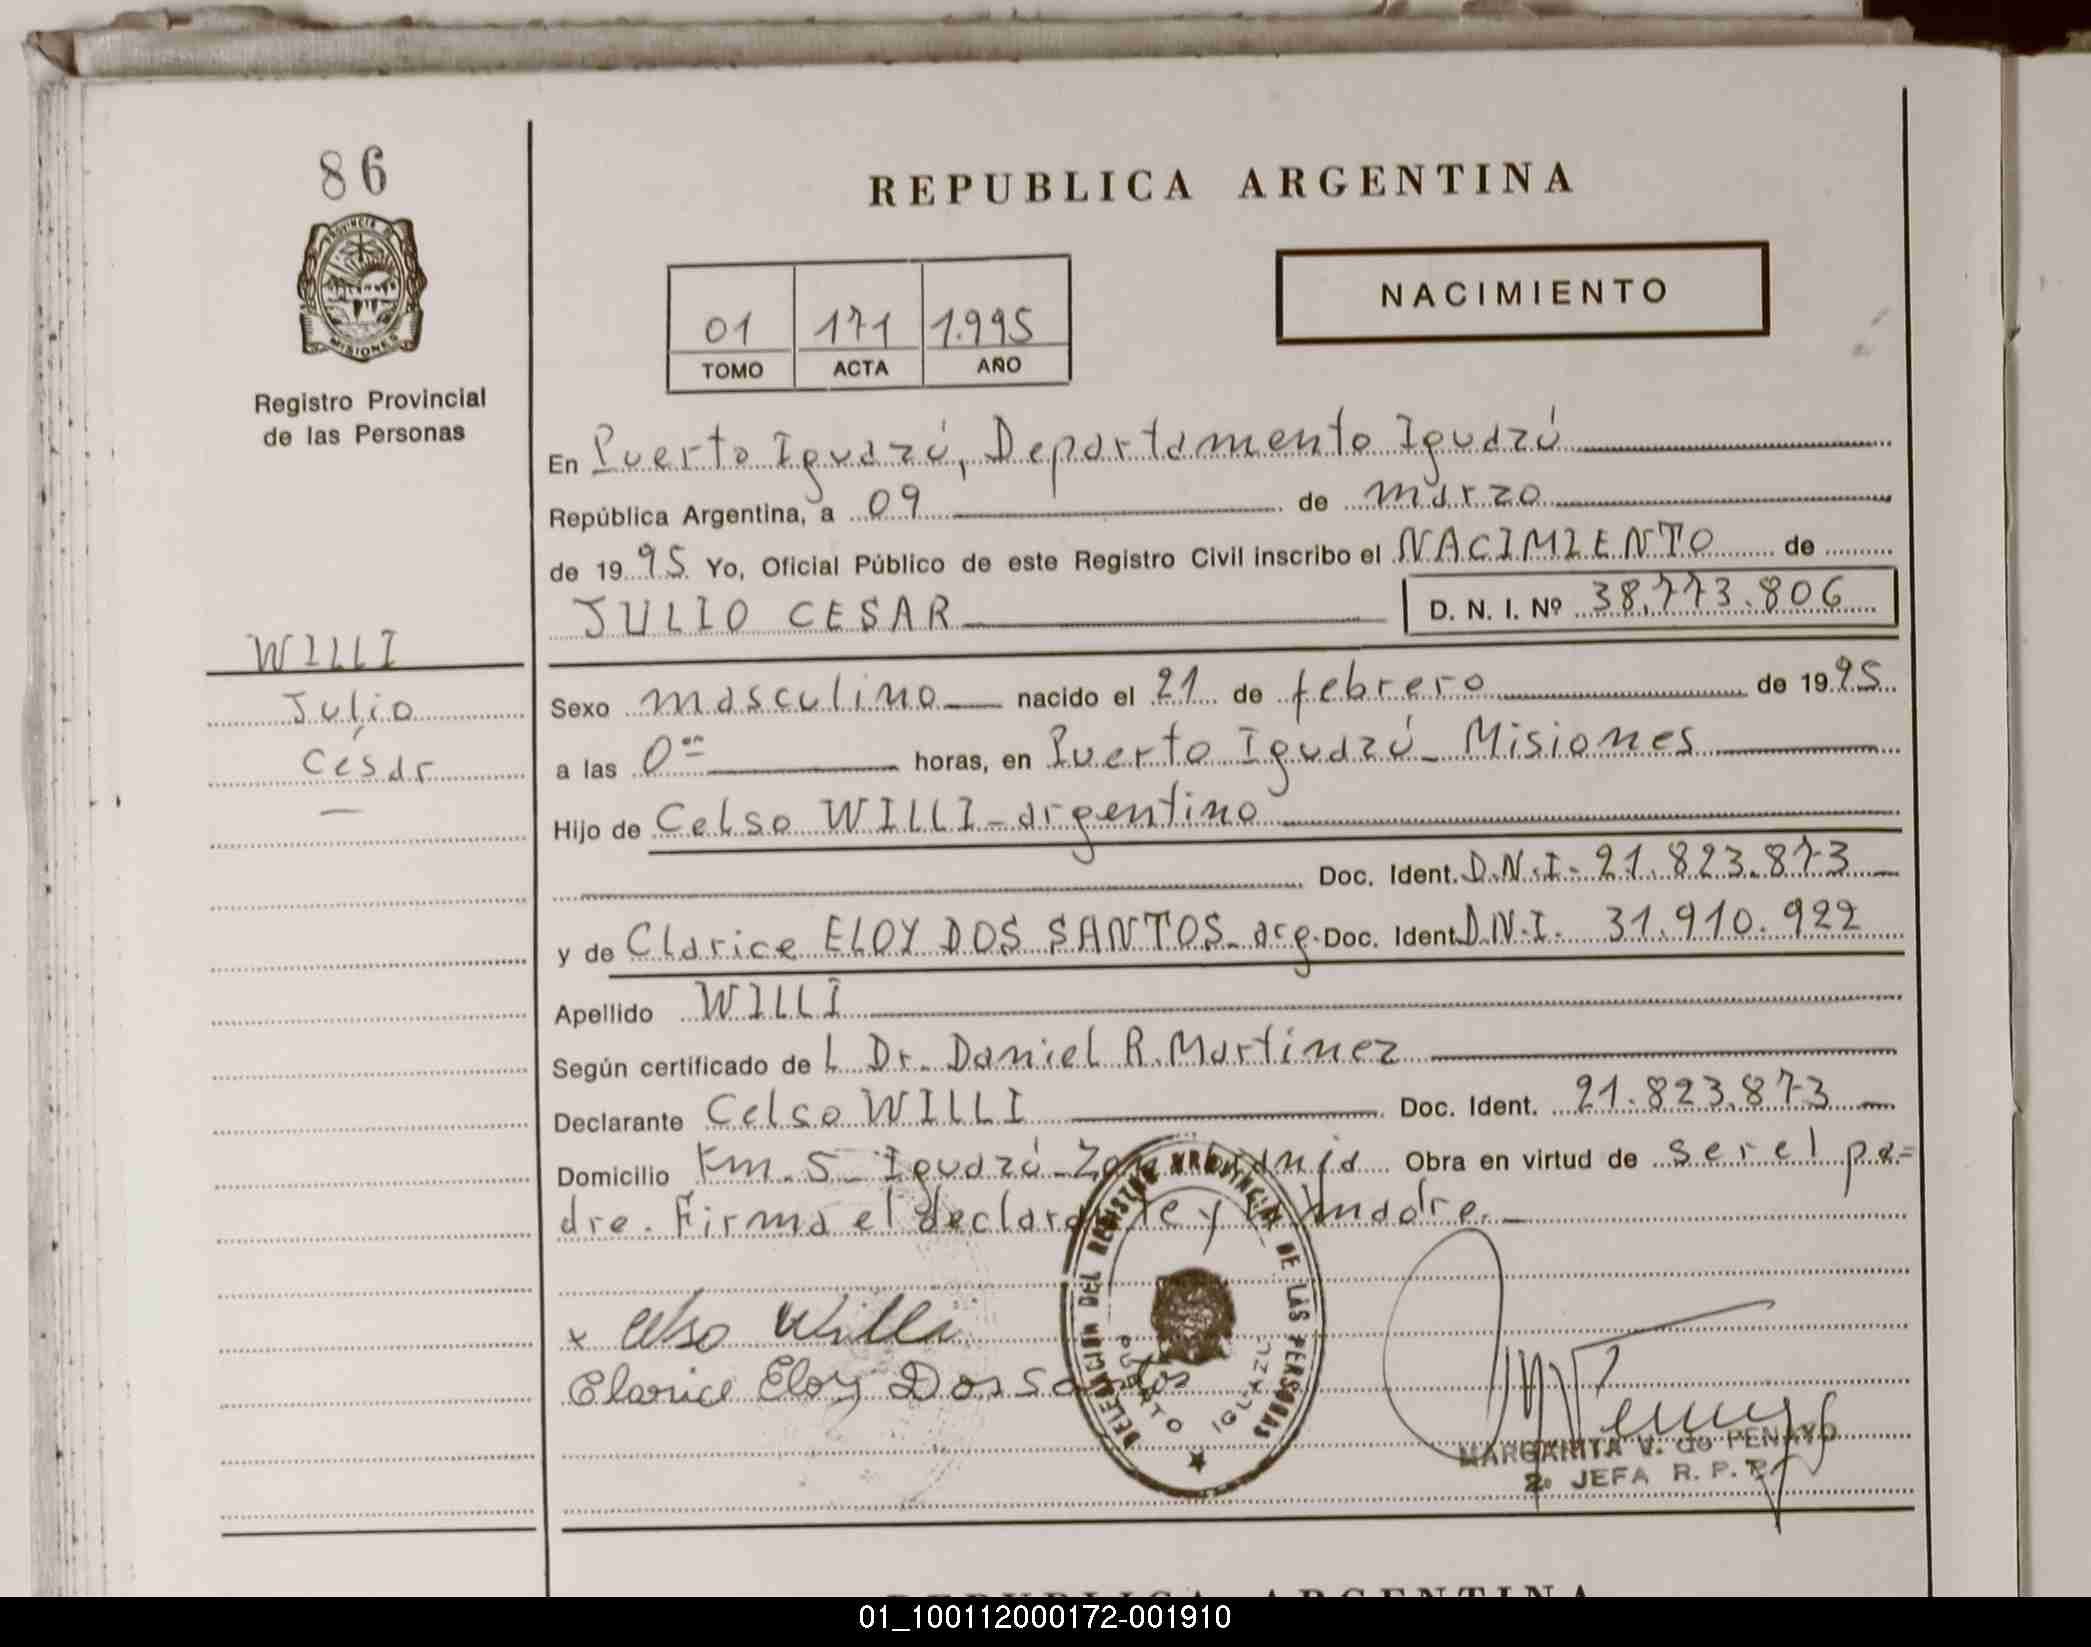 86
PROVINCIA DE
MISIONES
Registro Provincial
de las Personas
REPUBLICA ARGENTINA
01 171 1.995
TOMO ACTA AÑO
NACIMIENTO
En Puerto Iguazú, Departamento Iguazú
República Argentina, a 09 de marzo
de 19 95 Yo, Oficial Público de este Registro Civil inscribo el NACIMIENTO de
JULIO CESAR D. N. I. Nº 38.773.806
WILLI
Julio
César
Sexo masculino nacido el 21 de febrero de 19 95
a las 0 horas, en Puerto Iguazú - Misiones
Hijo de Celso WILLI - argentino
Doc. Ident. D.N.I. 21.823.873
y de Clarice ELOY DOS SANTOS - arg. Doc. Ident. D.N.I. 31.910.922
Apellido WILLI
Según certificado de L Dr. Daniel R. Martinez
Declarante Celso WILLI Doc. Ident. 21.823.873
Domicilio Km. 5 - Iguazú - Zona Obra en virtud de ser el pa=
dre. Firma el declarante y la madre.
DELEGACION DEL REGISTRO PROVINCIAL DE LAS PERSONAS
PUERTO IGUAZU
x Celso Willi
Clarice Eloy Dos Santos
MARGARITA V. de PENAYO
2º JEFA R. P. P.
REPUBLICA ARGENTINA
01_100112000172-001910